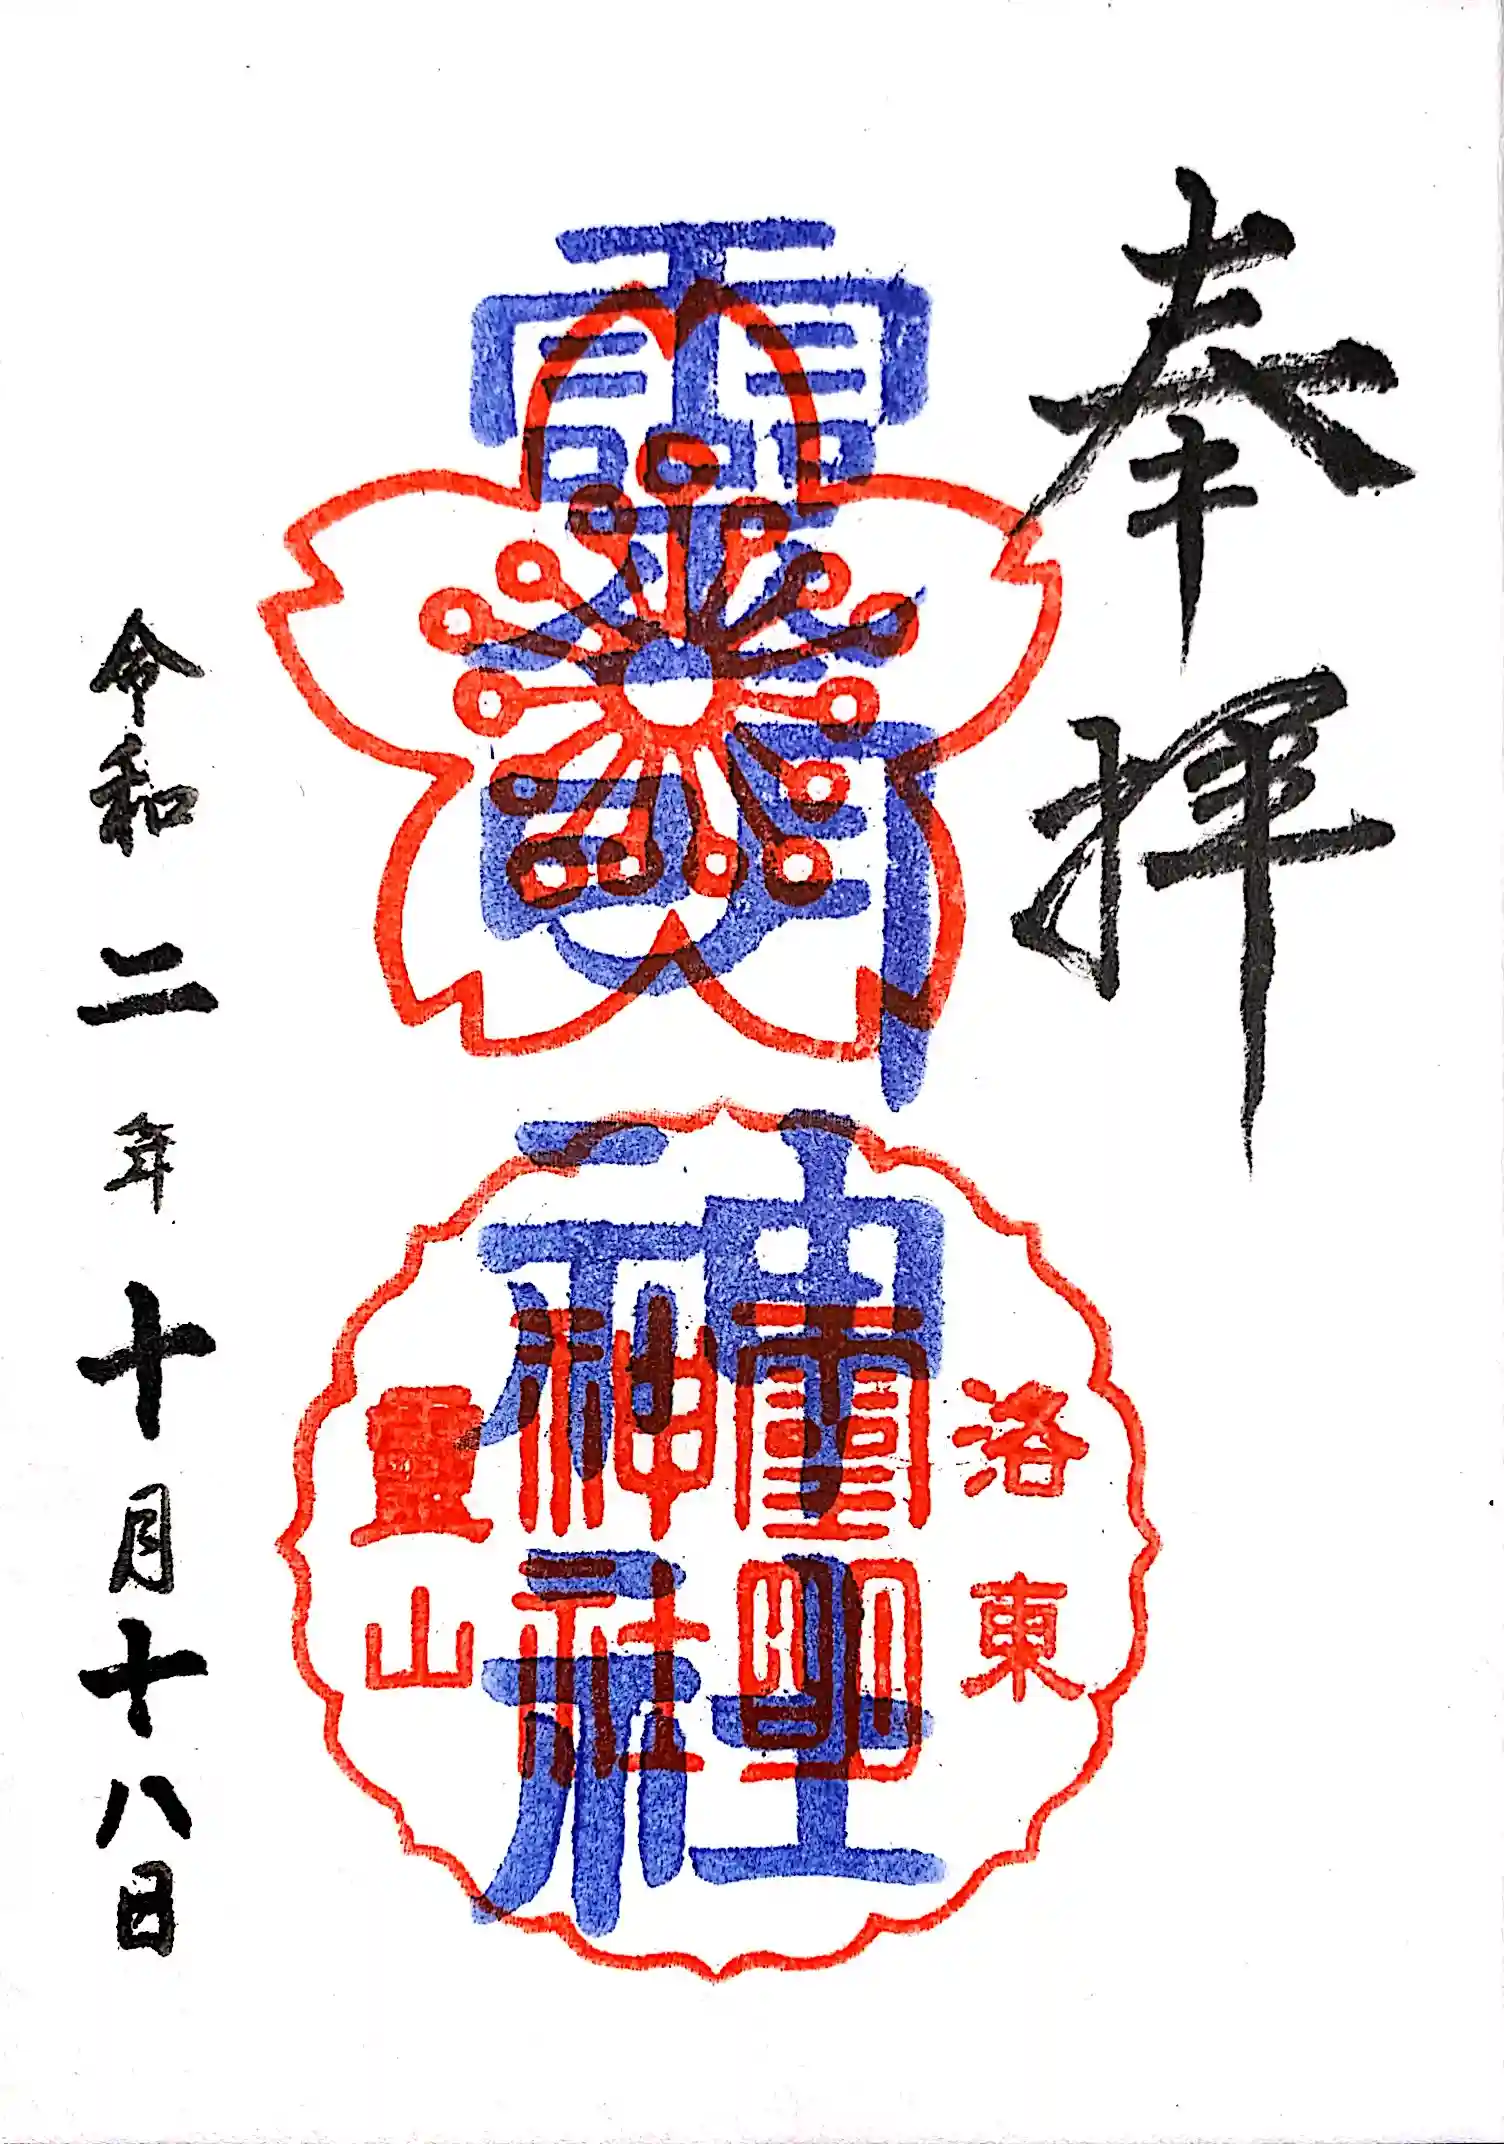 奉拝
洛東
靈明神社
靈明
神社
靈山
令和二年十月十八日